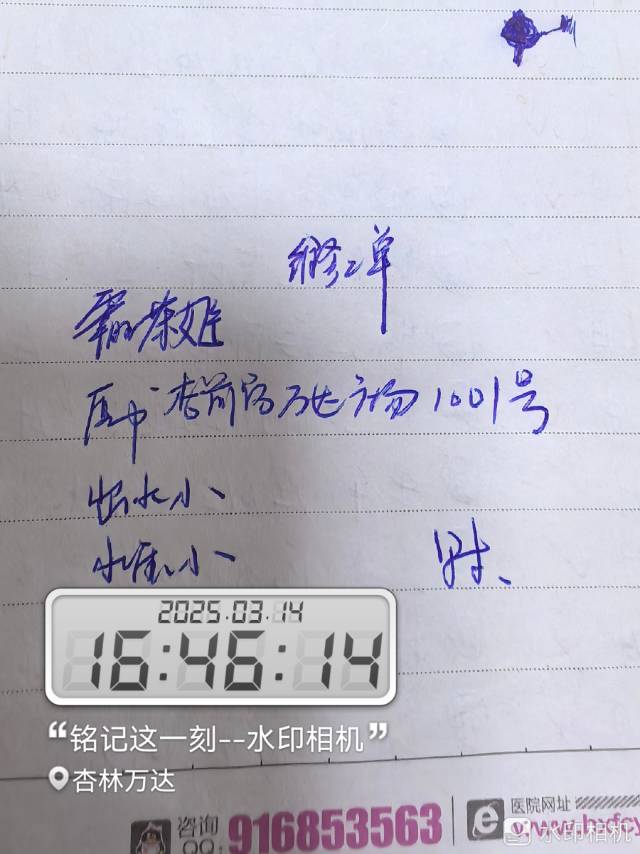 维修单
霸王茶姬
厦中 杏前路万达广场1001号
出水小
水压小
2025.03.14
16:46:14
“铭记这一刻--水印相机”
杏林万达
咨询
QQ: 916853563
医院网址
水印相机